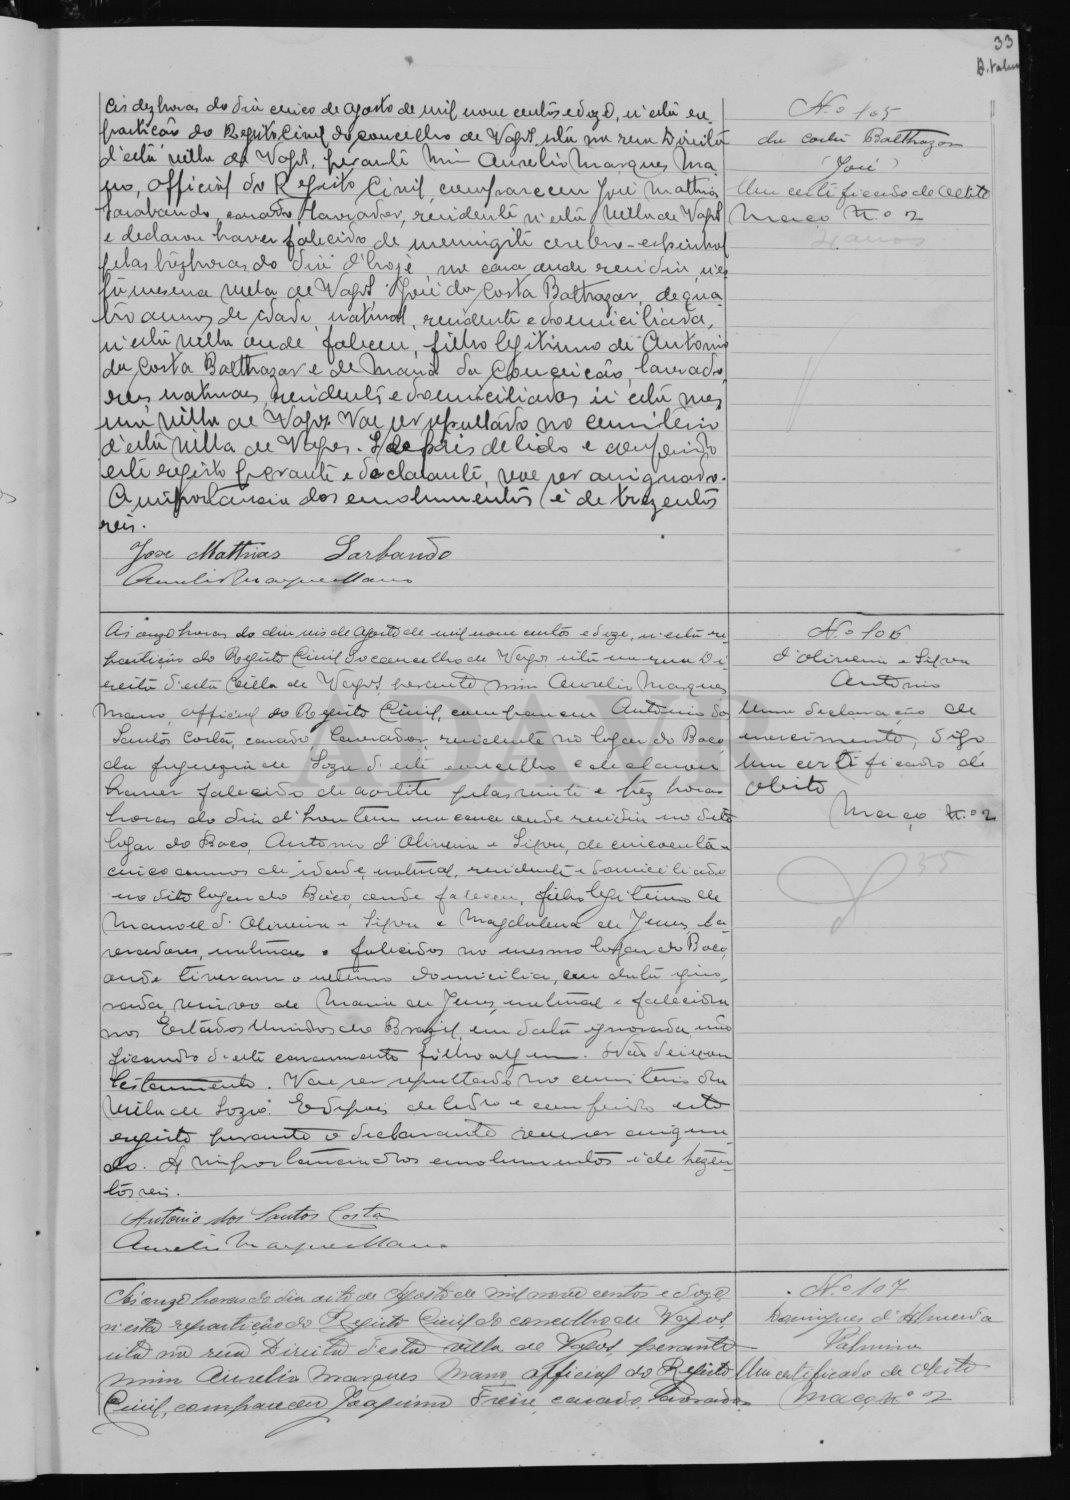 33
Nº 105
da costa Balthazar
(José)
Um certificado de obito
Maço Nº 2
4 annos
Ás dez horas do dia cinco de agosto de mil nove centos e doze, n'esta re-
partição do Registo Civil do concelho de Vagos, sita na rua Direita
d'esta villa de Vagos, perante mim Aurelio Marques Ma-
no, official do Registo Civil, compareceu José Mathias
Sarabando, casado, lavrador, residente n'esta villa de Vagos
e declarou haver falecido de meningite cerebro-espinhal
pelas trez horas do dia d'hoje, na casa onde residia, n'es-
ta mesma villa de Vagos José da Costa Balthazar, de qua-
tro annos de idade, natural, residente e domiciliado,
n'esta villa onde faleceu, filho legitimo de Antonio
da Costa Balthazar e de Maria da Conceição, lavrado-
res naturaes, residentes e domiciliados n'esta mes-
ma villa de Vagos. Vae ser sepultado no cemiterio
d'esta villa de Vagos. E depois de lido e conferido
este registo perante o declarante, vae ser assignado.
A importancia dos emolumentos é de trezentos
reis.
José Mathias Sarbando
Aurelio Marques Mano
Nº 106
d'Oliveira e Silva
Antonio
Uma declaração de
nascimento, digo
Um certificado de
obito
Maço Nº 2
35
Ás onze horas do dia seis de agosto de mil nove centos e doze, n'esta re-
partição do Registo Civil do concelho de Vagos sita na rua Di-
reita d'esta villa de Vagos, perante mim Aurelio Marques
Mano, official do Registo Civil, compareceu Antonio dos
Santos Costa, casado, lavrador, residente no logar do Boco
da freguezia de Soza d'este concelho e declarou
haver falecido de aortite pelas vinte e trez horas
horas do dia d'hontem na casa onde residia no dito
logar do Boco, Antonio d'Oliveira e Silva, de cincoenta e
cinco annos de idade, natural, residente e domiciliado
no dito logar do Boco, onde faleceu, filho legitimo de
Manoel d'Oliveira e Silva e Magdalena de Jesus, la-
vradores, naturaes e falecidos no mesmo logar do Boco,
onde tiveram o ultimo domicilio, em data igno-
rada, viuvo de Maria de Jesus, natural e falecida
nos Estados Unidos do Brazil, em data ignorada, não
ficando d'este casamento filho algum. Não deixou
testamento. Vae ser sepultado no cemiterio da
villa de Soza. E depois de lido e conferido este
registo perante o declarante vae ser assigna-
do. A importancia dos emolumentos é de trezen-
tos reis.
Antonio dos Santos Costa
Aurelio Marques Mano
Nº 107
Domingues d'Almeida
Palmira
Um certificado de obito
Maço Nº 2
Ás onze horas do dia oito de Agosto de mil nove centos e doze
n'esta repartição do Registo Civil do concelho de Vagos,
sita na rua Direita d'esta villa de Vagos perante
mim Aurelio Marques Mano official do Registo
Civil, compareceu Joaquim Freire, casado, lavrador
ADAVR